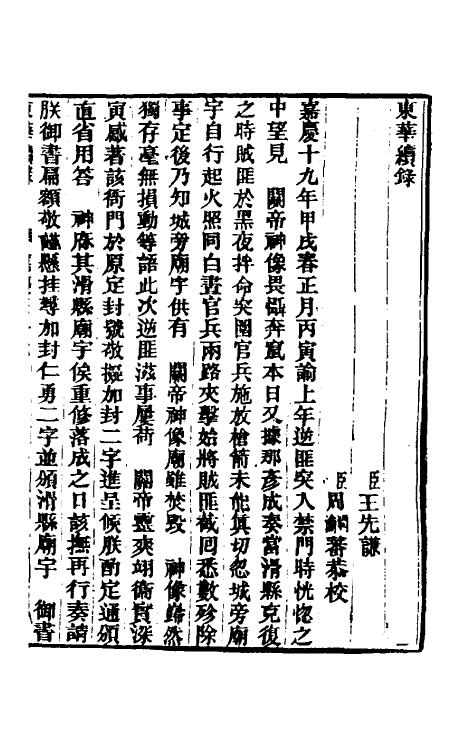 東華續錄
臣王先謙
臣周潤蕃恭校
嘉慶十九年甲戌春正月丙寅諭上年逆匪突入禁門時恍惚之
中望見　關帝神像畏懾奔竄本日又據那彥成奏當滑縣克復
之時賊匪於黑夜拌命突圍官兵施放槍箭未能真切忽城旁廟
宇自行起火照同白晝官兵兩路夾擊始將賊匪截回悉數殄除
事定後乃知城旁廟宇供有　關帝神像廟雖焚毀　神像巋然
獨存毫無損動等語此次逆匪滋事屢荷　關帝靈爽翊衞實深
寅感著該衙門於原定封號敬擬加封二字進呈候朕酌定通頒
直省用答　神庥其滑縣廟宇俟重修落成之日該撫再行奏請
朕御書扁額敬謹懸挂尋加封仁勇二字並頒滑縣廟宇　御書